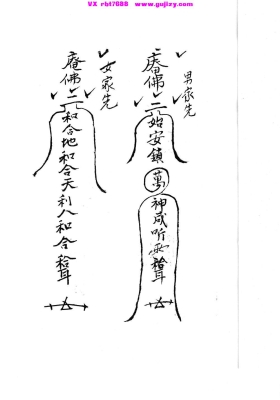 VX rbt7088 www.gujizy.com
男家先
唵佛二始安鎮萬神咸听
女家先
唵佛二和合地和合天利人和合